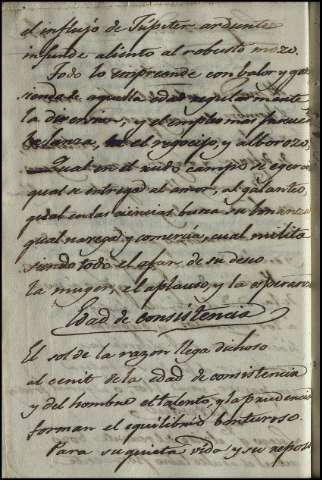 el influjo de Jupiter ardiente
infunde aliento al robusto mozo.
Todo lo emprende con valor y
aquella edad regularmente
la diversion, y el
el regocijo, y alborozo,
Qual en el rudo campo se egercita
qual se entrega al amor, al galanteo,
qual en las ciencias busca su bonanza
qual navega, y comercia, cual milita
siendo todo el afan de su deseo
la muger, el aplauso, y la esperanza
Edad de consistencia
El sol de la razon llega dichoso
al cenit de la edad de consistencia
y del hombre el talento, y la prudencia
forman el equilibrio venturoso.
Para su quieta vida, y su reposo